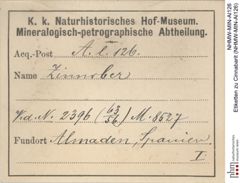 K. k. Naturhistorisches Hof-Museum.
Mineralogisch-petrographische Abtheilung.
Acq.-Post A. l. 126.
Name Zinnober
Kd. No. 2396 (63/56) M. 8527
Fundort Almaden, Spanien
I.
NHMW-MIN-AI126
Etiketten zu Cinnabarit (NHMW-MIN-AI126)
nhm